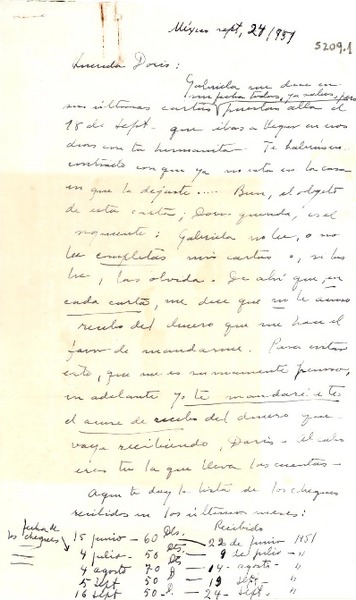 México sept, 24/951
5209.1
Querida Doris:
Gabriela me dice en
sus últimas cartas puestas allá el
18 de sept. que ibas a llegar en esos
días con tu hermanita. Te habrás en
contrado con que ya no está en la casa
en que la dejaste.... Bien, el objeto
de esta carta, Doris querida, es el
siguiente: Gabriela no lee, o no
lee completas mis cartas o, si las
lee, las olvida. De ahí que, en
cada carta, me dice que no le acuso
recibo del dinero que me hace el
favor de mandarme. Para evitar
esto, que me es sumamente penoso,
en adelante yo te mandaré a ti
el acuse de recibo del dinero que
vaya recibiendo, Doris. Al cabo
eres tú la que lleva las cuentas.
Aquí te doy la lista de los cheques
recibidos en los últimos meses:
fecha de los cheques
Recibido
15 junio - 60 Dls. - 22 de junio 1951
4 julio - 50 Dls. - 9 de julio - "
4 agosto - 70 D - 14 - agosto - "
5 sept - 50 D - 19 sept. - "
16 sept - 50 D - 24 - sept - "